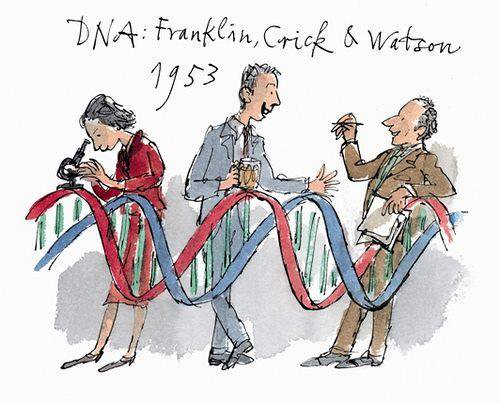 DNA: Franklin, Crick & Watson
1953